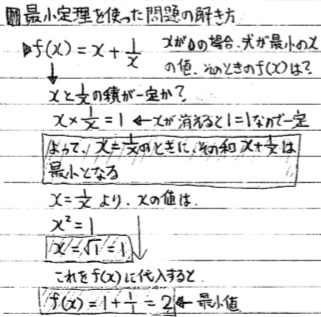 例 最小定理を使った問題の解き方
▷f(x) = x + 1/x xが の場合、 が最小のx
の値、そのときのf(x)は?
↓
xと1/xの積が一定か?
x × 1/x = 1 ← xが消えると1=1なので一定
よって、x = 1/xのときに、その和 x+1/x は
最小となる
x = 1/x より、xの値は、
x² = 1
x = √1 = 1
これをf(x)に代入すると
f(x) = 1 + 1/1 = 2 ← 最小値